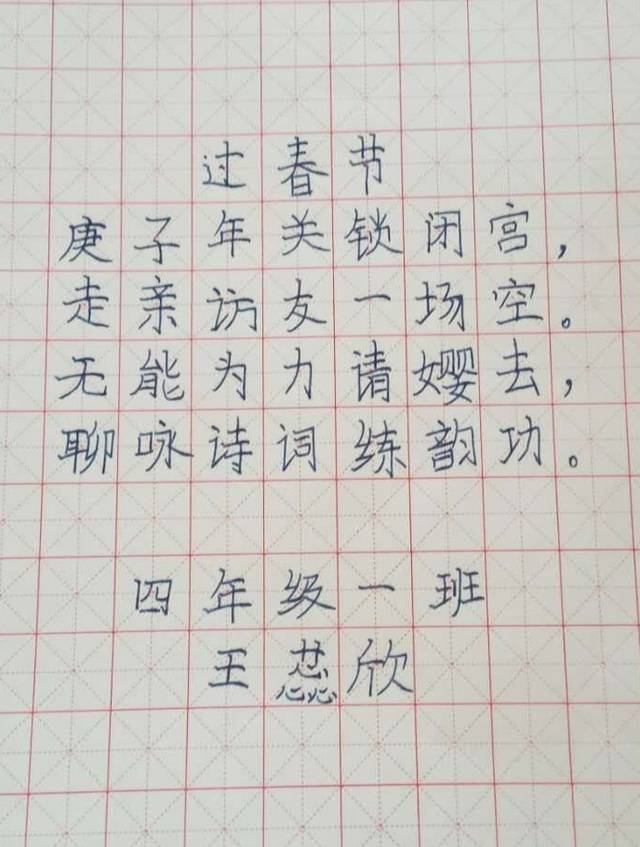 过春节
庚子年关锁闭宫，
走亲访友一场空。
无能为力请缨去，
聊咏诗词练韵功。
四年级一班
王蕊欣